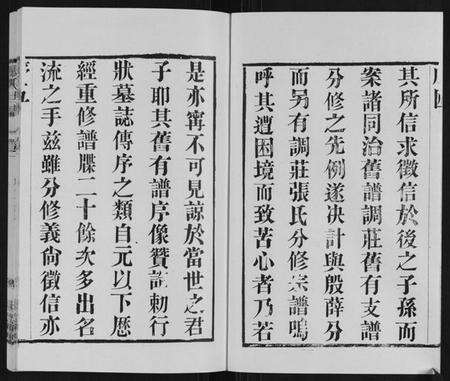 其所信求徵信於後之子孫而
案諸同治舊譜調莊舊有支譜
分修之先例遂决計與殷薛分
而另有調莊張氏分修宗譜嗚
呼其遭困境而致苦心者乃若
是亦寗不可見諒於當世之君
子耶其舊有譜序像贊誥勅行
狀墓誌傳序之類自元以下歷
經重修譜牒二十餘次多出名
流之手兹雖分修義尙徵信亦